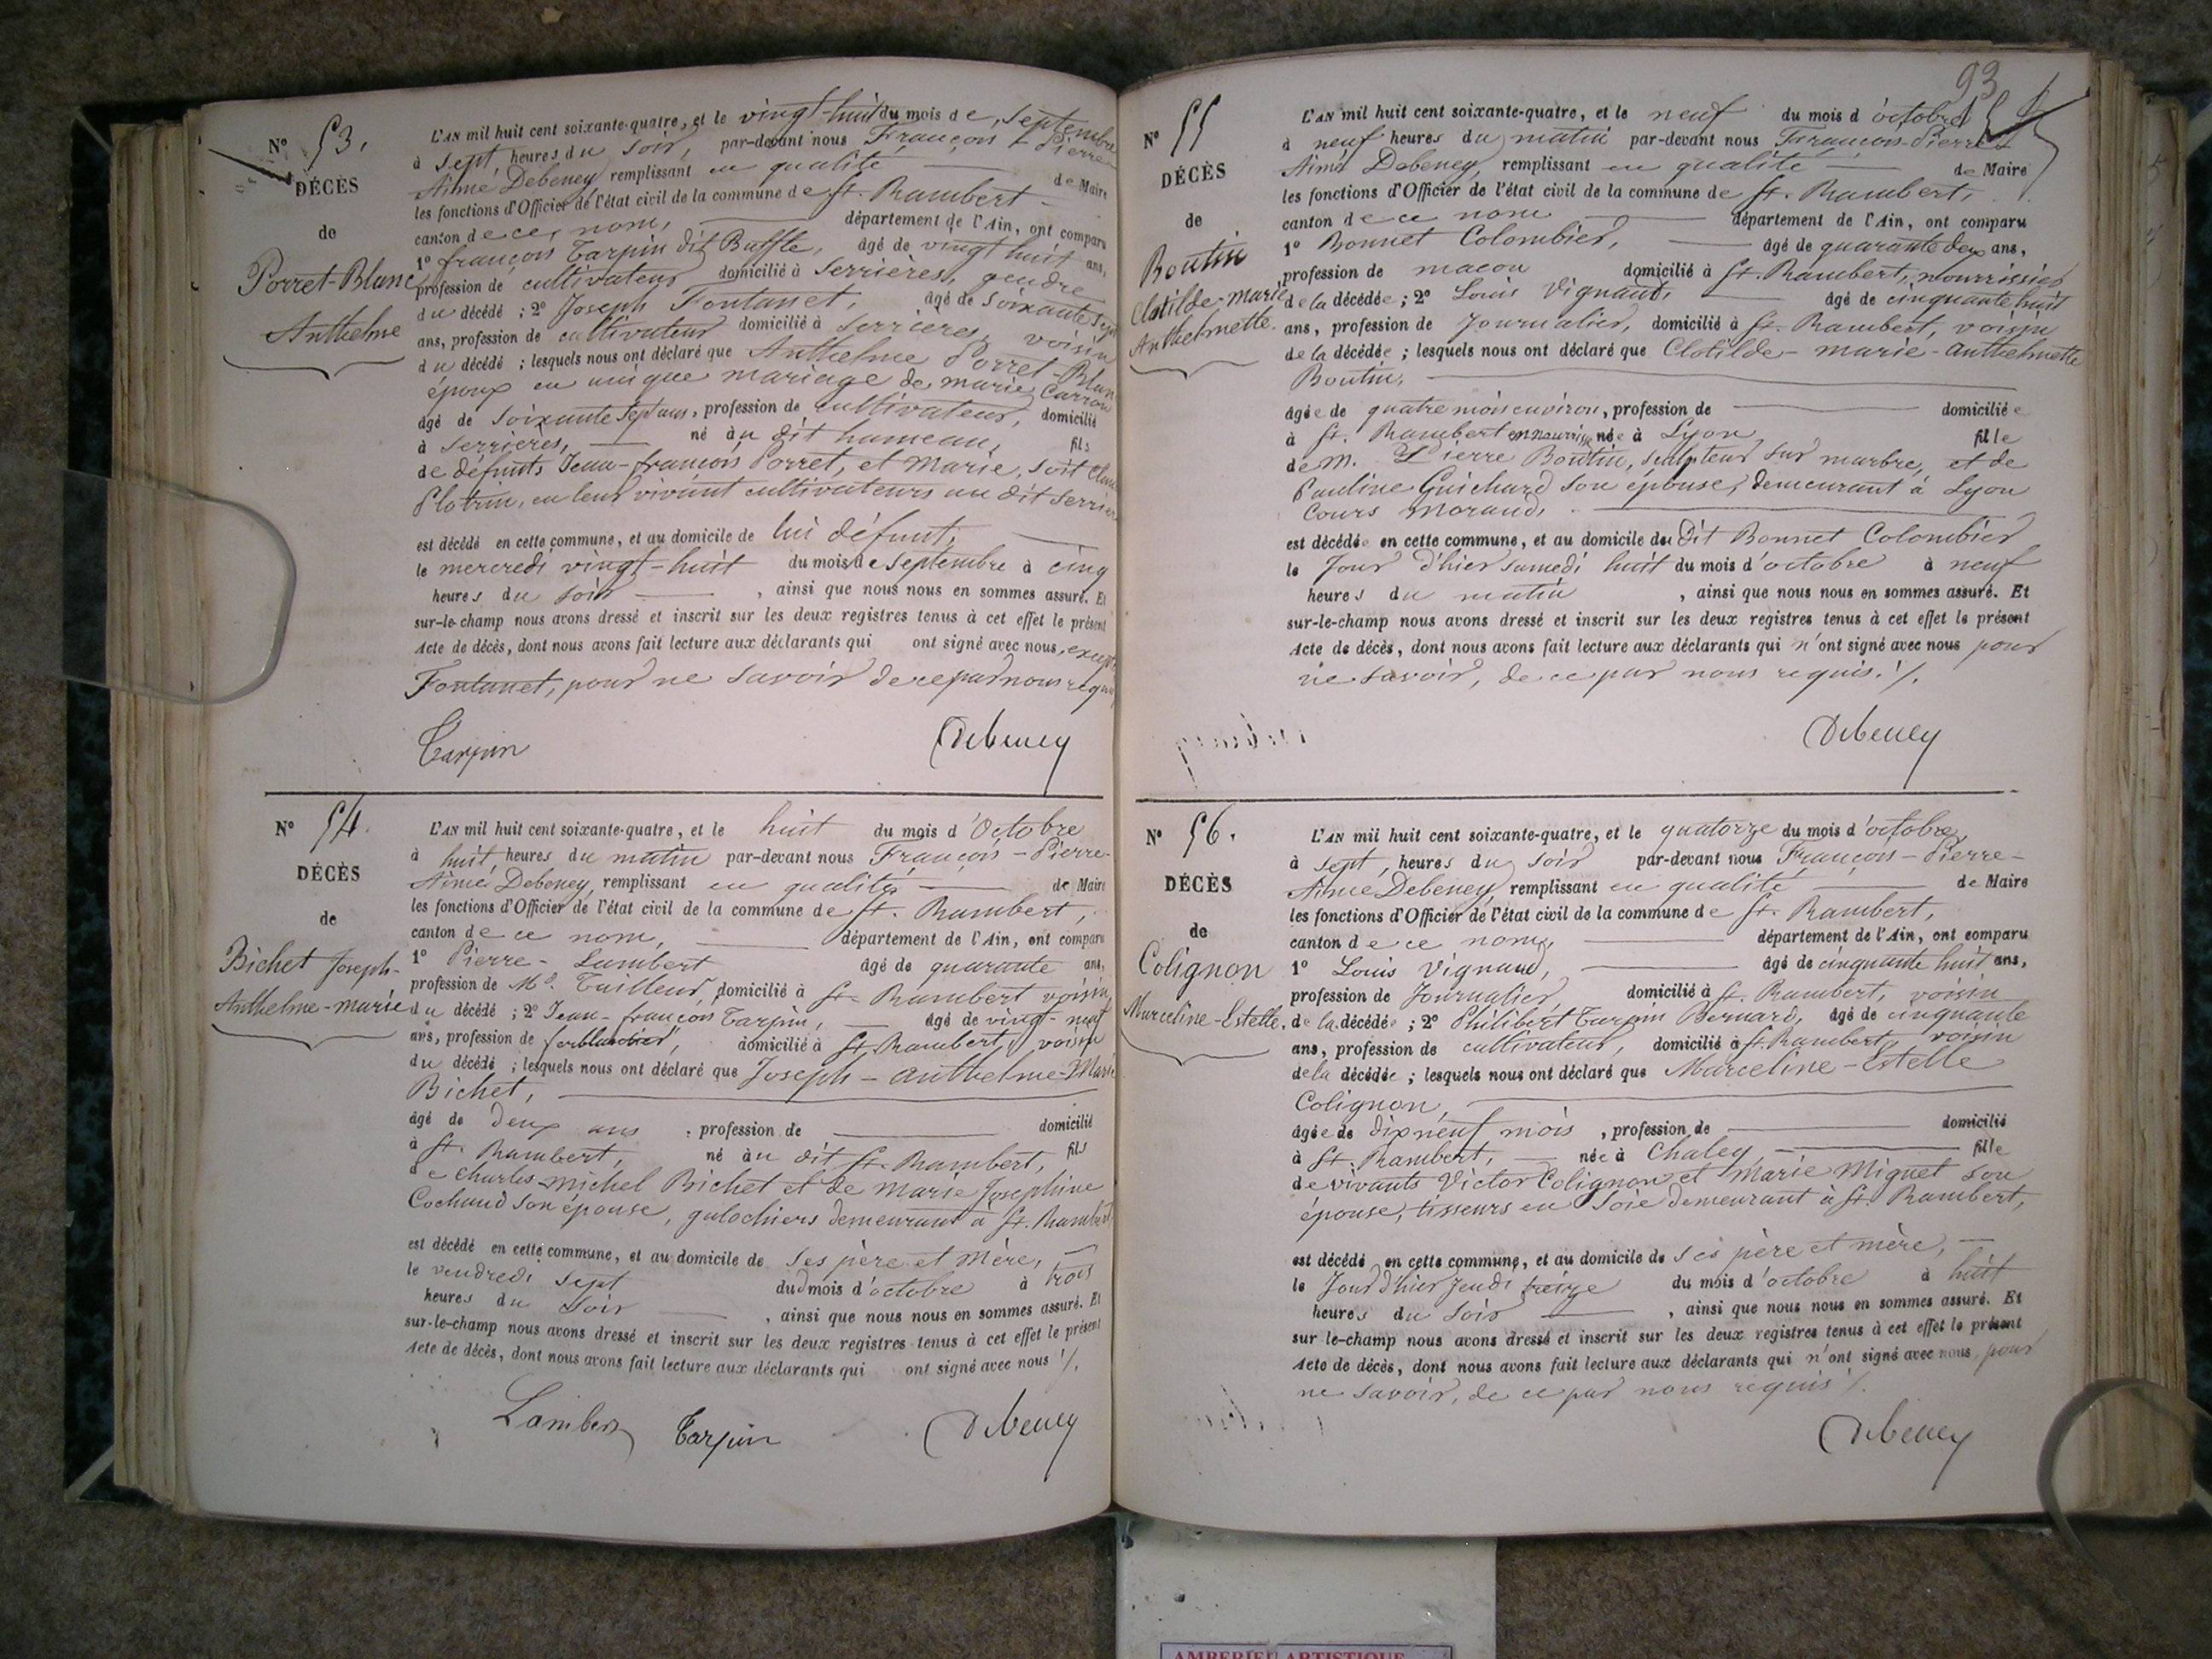 N° 53.
DÉCÈS
de
Porret-Blanc
Anthelme
L'AN mil huit cent soixante-quatre, et le vingt-huit du mois de, Septembre
à sept, heures du soir, par-devant nous François-Pierre
Aimé Debeney, remplissant en qualité de Maire
les fonctions d'Officier de l'état civil de la commune de St. Rambert
canton de ce, nom, département de l'Ain, ont comparu
1° françois Tarpin dit Buffle, âgé de vingt huit ans,
profession de cultivateur domicilié à Serrières, gendre
du décédé ; 2° Joseph Fontanet, âgé de soixante sept
ans, profession de cultivateur domicilié à Serrières, voisin
du décédé ; lesquels nous ont déclaré que Anthelme Porret-Blanc
époux en unique mariage de marie Carron
âgé de soixante sept ans, profession de cultivateur, domicilié
à Serrières, né au dit hameau, fils
de défunts Jean-françois Porret, et Marie, soit
Plotrin, en leur vivant cultivateurs au dit Serrières
est décédé en cette commune, et au domicile de lui défunt,
le mercredi vingt-huit du mois de septembre à cinq
heures du soir , ainsi que nous nous en sommes assuré. Et
sur-le-champ nous avons dressé et inscrit sur les deux registres tenus à cet effet le présent
Acte de décès, dont nous avons fait lecture aux déclarants qui ont signé avec nous, excepté
Fontanet, pour ne savoir de ce par nous requis
Tarpin Debeney
N° 54.
DÉCÈS
de
Bichet Joseph-
Anthelme-marie
L'AN mil huit cent soixante-quatre, et le huit du mois d'Octobre
à huit, heures du matin par-devant nous François-Pierre-
Aimé Debeney, remplissant en qualité de Maire
les fonctions d'Officier de l'état civil de la commune de St. Rambert,
canton de ce nom, département de l'Ain, ont comparu
1° Pierre-Lambert âgé de quarante ans,
profession de Md. Tailleur, domicilié à St. Rambert voisin
du décédé ; 2° Jean-françois Tarpin, âgé de vingt-neuf
ans, profession de ferblantier, domicilié à St. Rambert, voisin
du décédé ; lesquels nous ont déclaré que Joseph-Anthelme-Marie
Bichet,
âgé de deux ans , profession de domicilié
à St. Rambert, né au dit St. Rambert, fils
de charles-michel Bichet et de Marie Josephine
Cochaud son épouse, galochiers demeurant à St. Rambert
est décédé en cette commune, et au domicile de ses père et mère,
le vendredi sept du mois d'octobre à trois
heures du soir , ainsi que nous nous en sommes assuré. Et
sur-le-champ nous avons dressé et inscrit sur les deux registres tenus à cet effet le présent
Acte de décès, dont nous avons fait lecture aux déclarants qui ont signé avec nous ./.
Lambert Tarpin Debeney
93
N° 55
DÉCÈS
de
Boutin
Clotilde-Marie
Anthelmette.
L'AN mil huit cent soixante-quatre, et le neuf du mois d'octobre
à neuf heures du matin par-devant nous François-Pierre
Aimé Debeney, remplissant en qualité de Maire
les fonctions d'Officier de l'état civil de la commune de St. Rambert,
canton de ce nom département de l'Ain, ont comparu
1° Bonnet Colombier, âgé de quarante deux ans,
profession de maçon domicilié à St. Rambert, nourrissier
de la décédée ; 2° Louis Vignaud, âgé de cinquante huit
ans, profession de Journalier, domicilié à St. Rambert, voisin
de la décédée ; lesquels nous ont déclaré que Clotilde-marie-anthelmette
Boutin,
âgée de quatre mois environ, profession de domiciliée
à St. Rambert en nourrisse née à Lyon fille
de M. Pierre Boutin, sculpteur sur marbre, et de
Pauline Guichard son épouse, demeurant à Lyon
Cours Morand,
est décédée en cette commune, et au domicile du dit Bonnet Colombier
le Jour d'hier samedi huit du mois d'octobre à neuf
heures du matin , ainsi que nous nous en sommes assuré. Et
sur-le-champ nous avons dressé et inscrit sur les deux registres tenus à cet effet le présent
Acte de décès, dont nous avons fait lecture aux déclarants qui n'ont signé avec nous pour
ne savoir, de ce par nous requis ./.
Debeney
N° 56.
DÉCÈS
de
Colignon
Marceline-Estelle.
L'AN mil huit cent soixante-quatre, et le quatorze du mois d'octobre,
à sept, heures du soir par-devant nous François-Pierre-
Aimé Debeney, remplissant en qualité de Maire
les fonctions d'Officier de l'état civil de la commune de St. Rambert,
canton de ce nom, département de l'Ain, ont comparu
1° Louis Vignaud, âgé de cinquante huit ans,
profession de Journalier, domicilié à St. Rambert, voisin
de la décédée ; 2° Philibert Tarpin Bernard, âgé de cinquante
ans, profession de cultivateur, domicilié à St. Rambert, voisin
de la décédée ; lesquels nous ont déclaré que Marceline-Estelle
Colignon,
âgée de dix neuf mois , profession de domicilié
à St. Rambert, née à Chaley fille
de vivants Victor Colignon et Marie Miguet son
épouse, tisseurs en Soie demeurant à St. Rambert,
est décédé en cette commune, et au domicile de ses père et mère,
le Jour d'hier Jeudi treize du mois d'octobre à huit
heures du soir , ainsi que nous nous en sommes assuré. Et
sur-le-champ nous avons dressé et inscrit sur les deux registres tenus à cet effet le présent
Acte de décès, dont nous avons fait lecture aux déclarants qui n'ont signé avec nous, pour
ne savoir, de ce par nous requis ./.
Debeney
AMBERIEU ARTISTIQUE